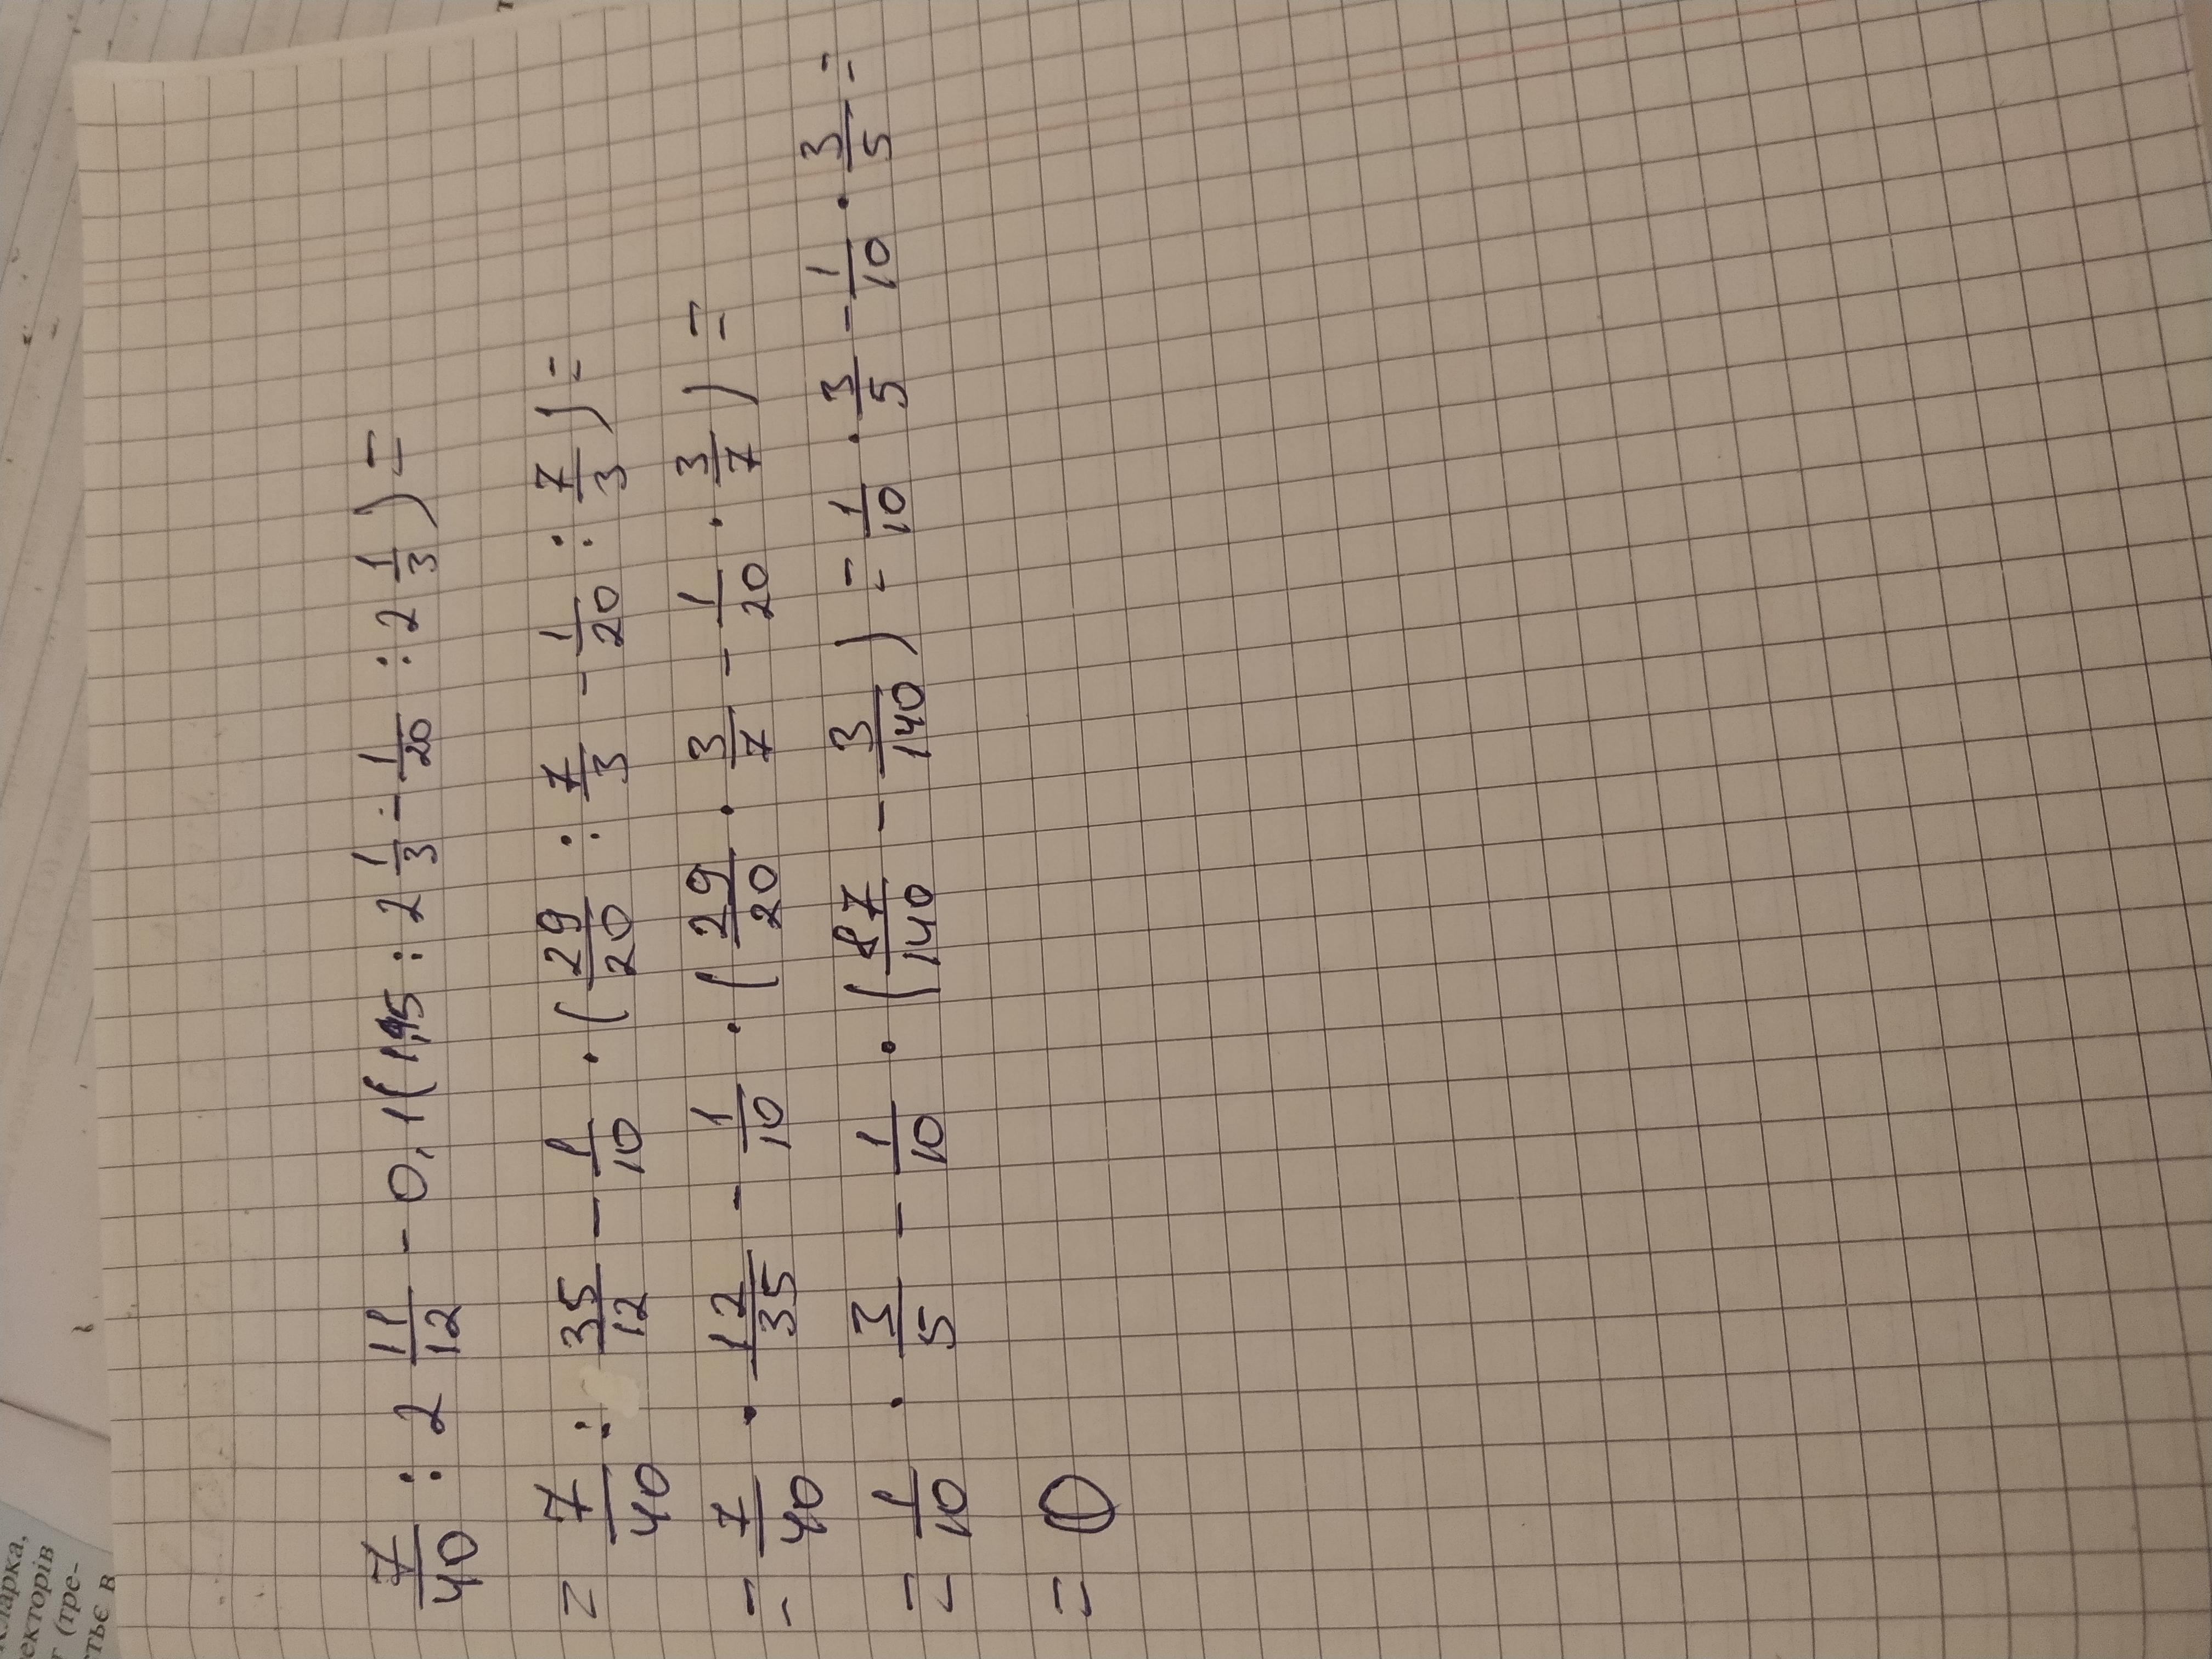 7/40 : 2 11/12 - 0,1(1,45 : 2 1/3 - 1/20 : 2 1/3) =
= 7/40 : 35/12 - 1/10 · (29/20 : 7/3 - 1/20 : 7/3) =
= 7/40 · 12/35 - 1/10 · (29/20 · 3/7 - 1/20 · 3/7) =
= 1/10 · 3/5 - 1/10 · (87/140 - 3/140) = 1/10 · 3/5 - 1/10 · 3/5 =
= 0
ларка,
екторів
(тре-
ться в